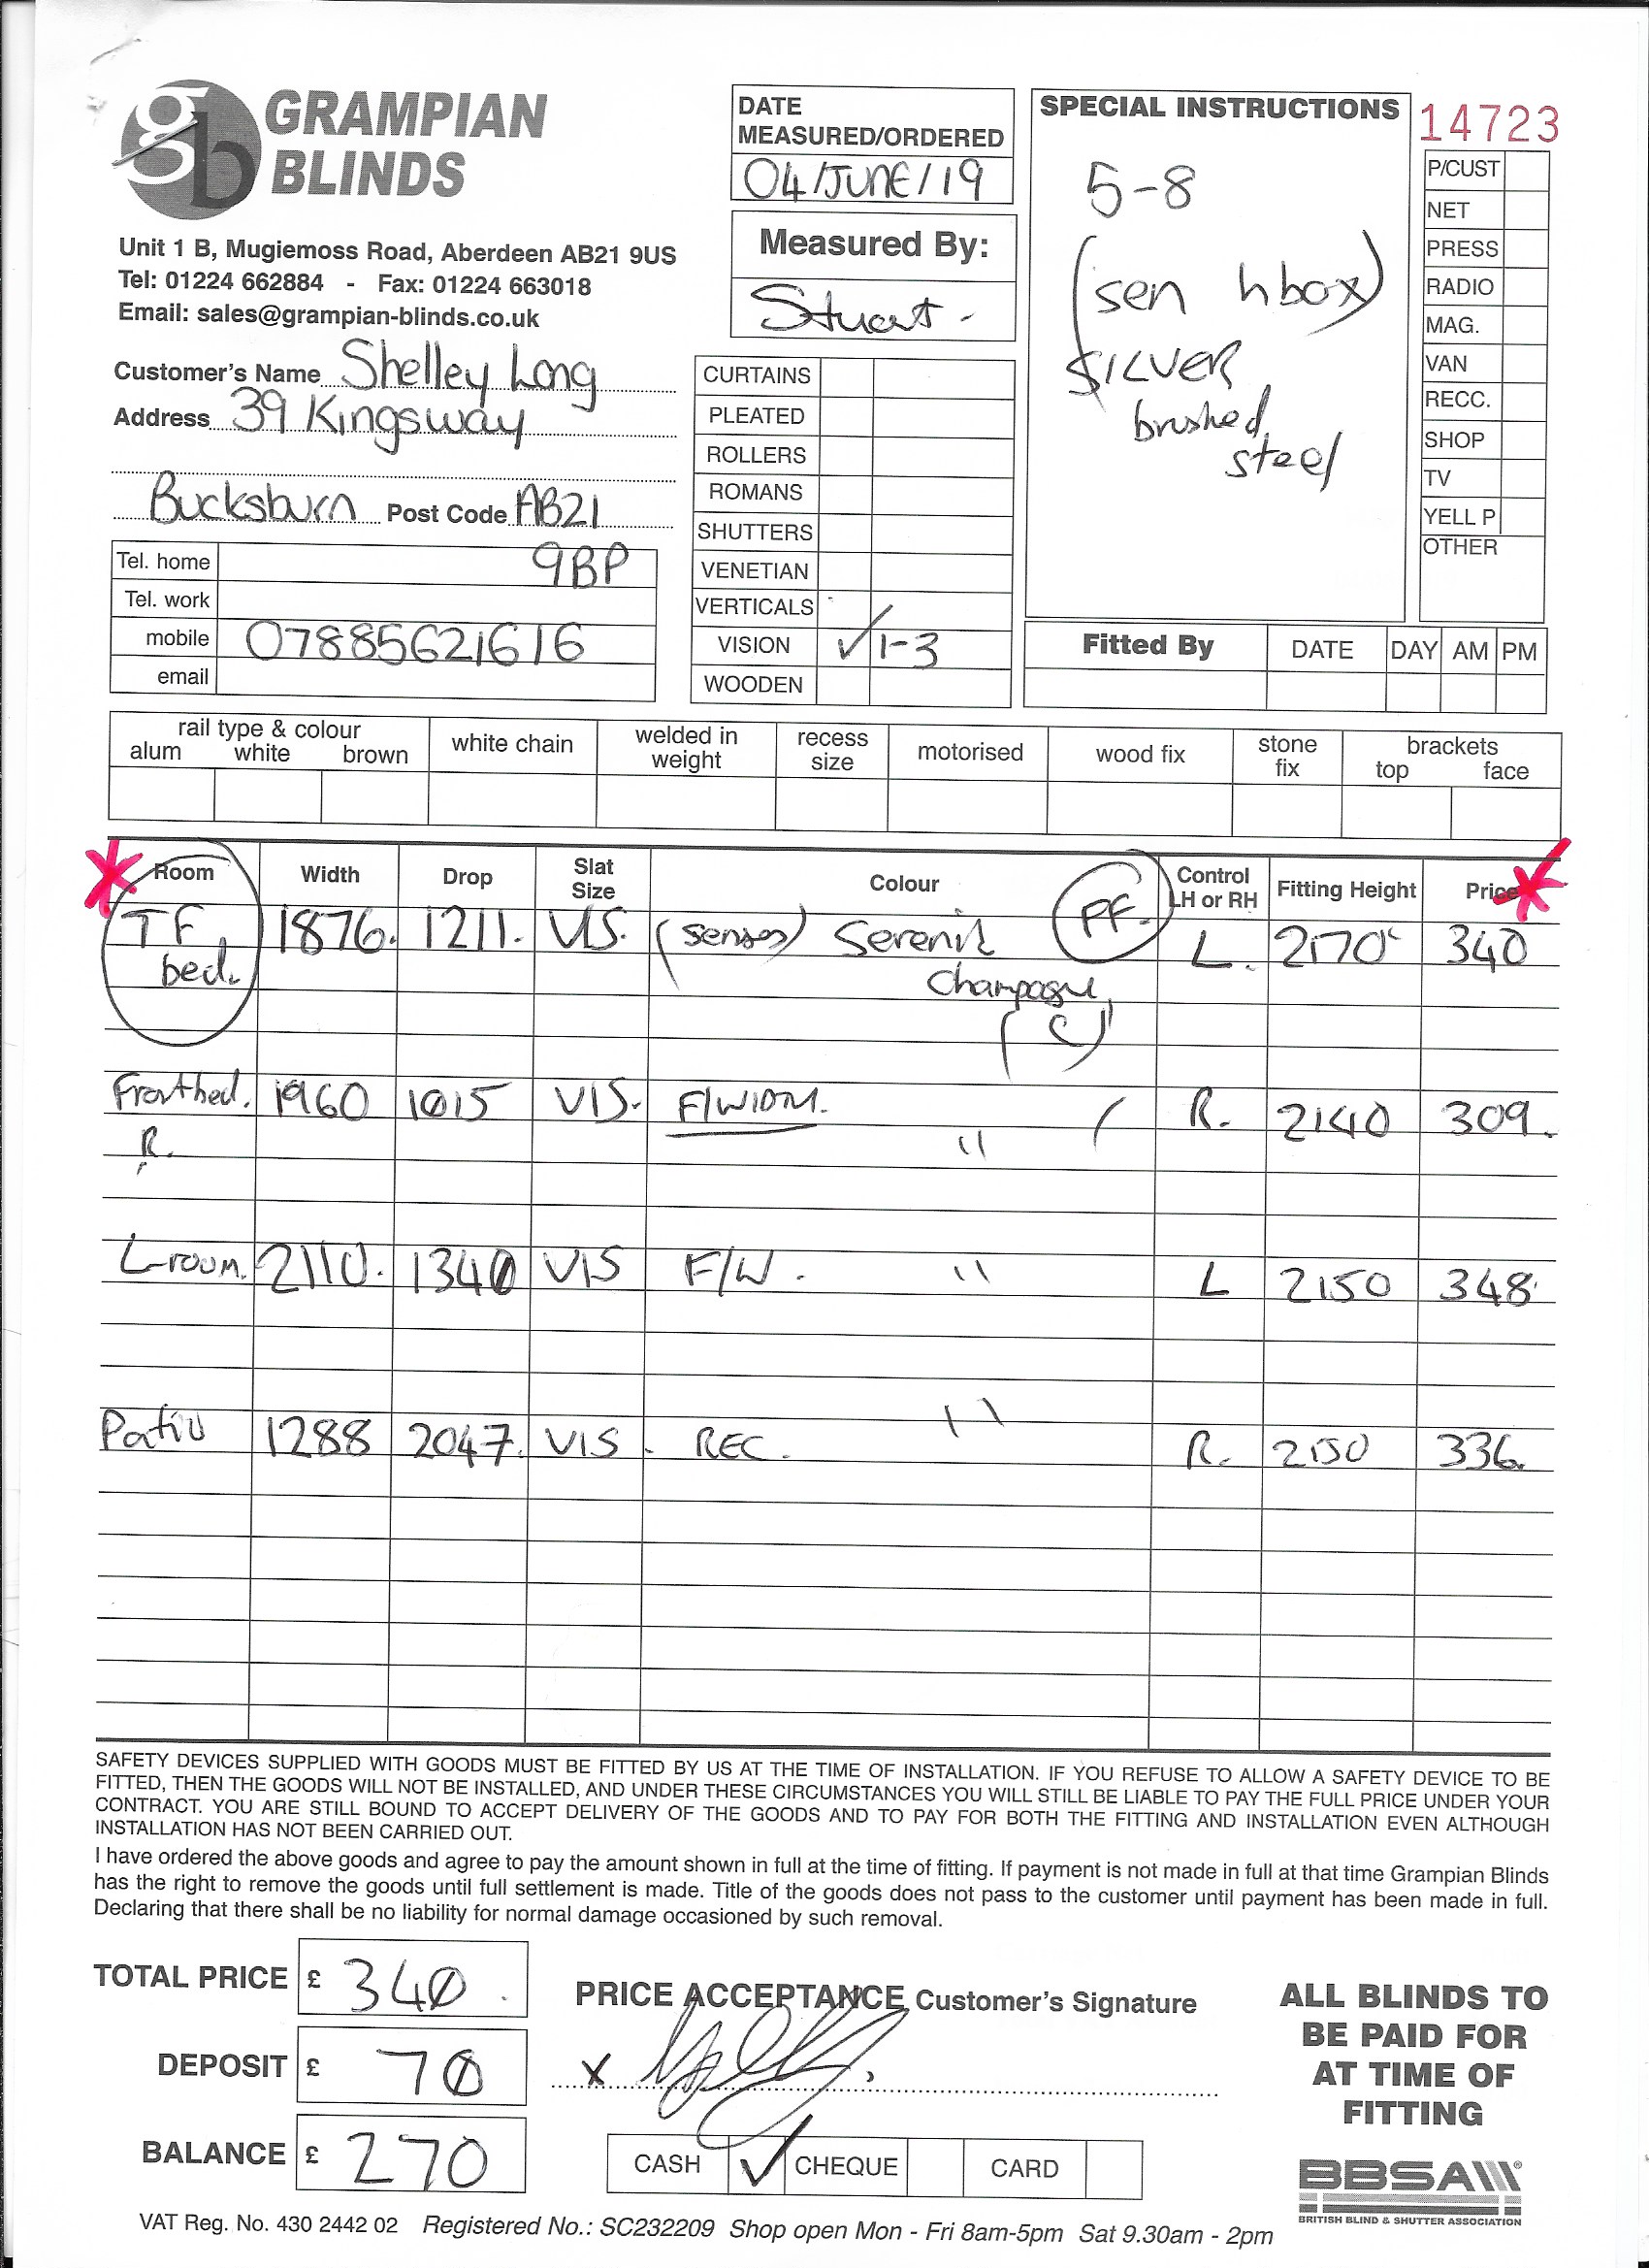 gb GRAMPIAN
BLINDS
Unit 1 B, Mugiemoss Road, Aberdeen AB21 9US
Tel: 01224 662884 - Fax: 01224 663018
Email: sales@grampian-blinds.co.uk
Customer's Name Shelley Long
Address 39 Kingsway
Bucksburn Post Code AB21
9BP
Tel. home
Tel. work
mobile 07885621616
email
DATE
MEASURED/ORDERED
04/JUNE/19
Measured By:
Stuart.
CURTAINS
PLEATED
ROLLERS
ROMANS
SHUTTERS
VENETIAN
VERTICALS
VISION ✓ 1-3
WOODEN
SPECIAL INSTRUCTIONS
5-8
(sen hbox)
SILVER
brushed
steel
14723
P/CUST
NET
PRESS
RADIO
MAG.
VAN
RECC.
SHOP
TV
YELL P
OTHER
Fitted By DATE DAY AM PM
rail type & colour
alum white brown
white chain
welded in
weight
recess
size
motorised
wood fix
stone
fix
brackets
top face
Room Width Drop Slat Size Colour Control LH or RH Fitting Height Price
TF 1876. 1211. VIS. (senses) Serenity PF. L. 2170 340
bed. Champagne
(C)
Front bed. 1960 1015 VIS. F/WIDM. " R. 2140 309.
R.
L-room. 2110. 1340 VIS F/W. " L 2150 348
Patio 1288 2047. VIS. REC. " R. 2150 336.
SAFETY DEVICES SUPPLIED WITH GOODS MUST BE FITTED BY US AT THE TIME OF INSTALLATION. IF YOU REFUSE TO ALLOW A SAFETY DEVICE TO BE
FITTED, THEN THE GOODS WILL NOT BE INSTALLED, AND UNDER THESE CIRCUMSTANCES YOU WILL STILL BE LIABLE TO PAY THE FULL PRICE UNDER YOUR
CONTRACT. YOU ARE STILL BOUND TO ACCEPT DELIVERY OF THE GOODS AND TO PAY FOR BOTH THE FITTING AND INSTALLATION EVEN ALTHOUGH
INSTALLATION HAS NOT BEEN CARRIED OUT.
I have ordered the above goods and agree to pay the amount shown in full at the time of fitting. If payment is not made in full at that time Grampian Blinds
has the right to remove the goods until full settlement is made. Title of the goods does not pass to the customer until payment has been made in full.
Declaring that there shall be no liability for normal damage occasioned by such removal.
TOTAL PRICE £ 340.
DEPOSIT £ 70
BALANCE £ 270
PRICE ACCEPTANCE Customer's Signature
x
CASH ✓ CHEQUE CARD
ALL BLINDS TO
BE PAID FOR
AT TIME OF
FITTING
BBSA
BRITISH BLIND & SHUTTER ASSOCIATION
VAT Reg. No. 430 2442 02 Registered No.: SC232209 Shop open Mon - Fri 8am-5pm Sat 9.30am - 2pm